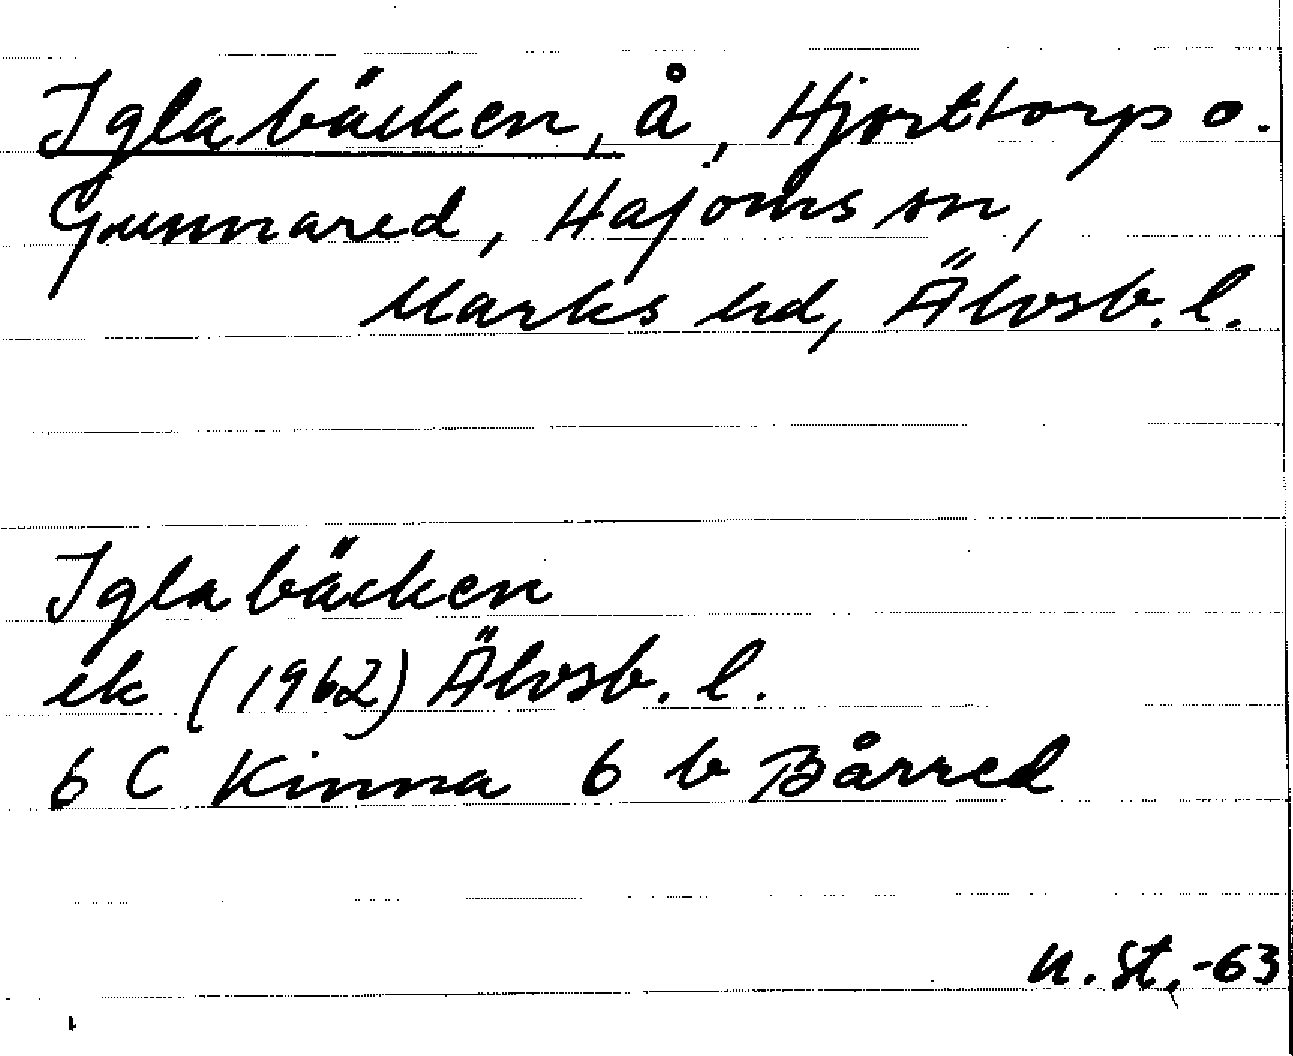 Iglabäcken, å, Hjorttorp o.
Gunnared, Hajoms sn,
Marks hd, Älvsb. l.
Iglabäcken
ek (1962) Älvsb. l.
6 C Kinna 6 b Bårred
n. St, -63